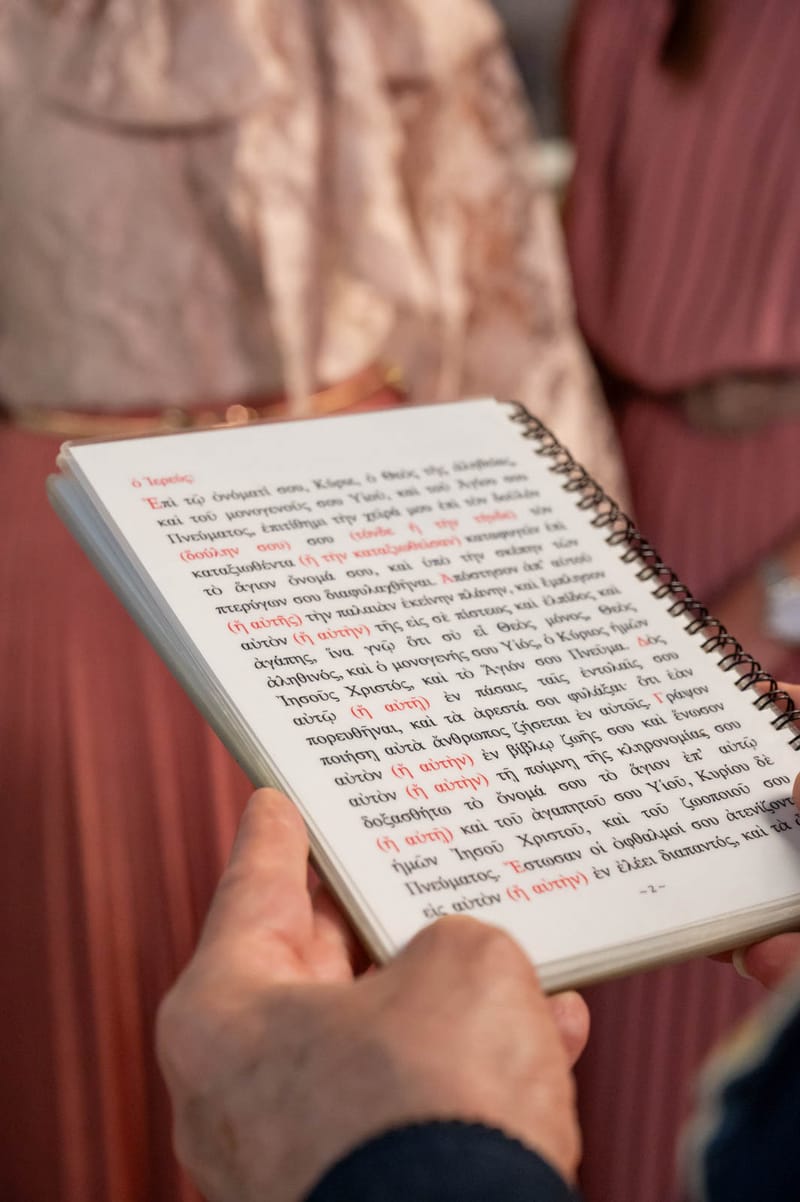 ὁ Ἱερεύς:
Ἐπὶ τῷ ὀνόματί σου, Κύριε, ὁ Θεὸς τῆς ἀληθείας,
καὶ τοῦ μονογενοῦς σου Υἱοῦ, καὶ τοῦ Ἁγίου σου
Πνεύματος, ἐπιτίθημι τὴν χεῖρά μου ἐπὶ τὸν δοῦλόν
(δούλην σου) σου (τόνδε ἢ τὴν τήνδε) τὸν
καταξιωθέντα (ἢ τὴν καταξιωθεῖσαν) καταφυγεῖν ἐπὶ
τὸ ἅγιον ὄνομά σου, καὶ ὑπὸ τὴν σκέπην τῶν
πτερύγων σου διαφυλαχθῆναι. Ἀπόστησον ἀπ' αὐτοῦ
(ἢ αὐτῆς) τὴν παλαιὰν ἐκείνην πλάνην, καὶ ἔμπλησον
αὐτὸν (ἢ αὐτὴν) τῆς εἰς σὲ πίστεως καὶ ἐλπίδος καὶ
ἀγάπης, ἵνα γνῷ ὅτι σὺ εἶ Θεὸς μόνος, Θεὸς
ἀληθινός, καὶ ὁ μονογενής σου Υἱός, ὁ Κύριος ἡμῶν
Ἰησοῦς Χριστός, καὶ τὸ Ἅγιόν σου Πνεῦμα. Δὸς
αὐτῷ (ἢ αὐτῇ) ἐν πάσαις ταῖς ἐντολαῖς σου
πορευθῆναι, καὶ τὰ ἀρεστά σοι φυλάξαι· ὅτι ἐὰν
ποιήσῃ αὐτὰ ἄνθρωπος ζήσεται ἐν αὐτοῖς. Γράψον
αὐτὸν (ἢ αὐτὴν) ἐν βίβλῳ ζωῆς σου καὶ ἕνωσον
αὐτὸν (ἢ αὐτὴν) τῇ ποίμνῃ τῆς κληρονομίας σου
δοξασθήτω τὸ ὄνομά σου τὸ ἅγιον ἐπ' αὐτῷ
(ἢ αὐτῇ) καὶ τοῦ ἀγαπητοῦ σου Υἱοῦ, Κυρίου δὲ
ἡμῶν Ἰησοῦ Χριστοῦ, καὶ τοῦ ζωοποιοῦ σου
Πνεύματος. Ἔστωσαν οἱ ὀφθαλμοί σου ἀτενίζοντ
εἰς αὐτὸν (ἢ αὐτὴν) ἐν ἐλέει διαπαντός, καὶ τὰ
~2~